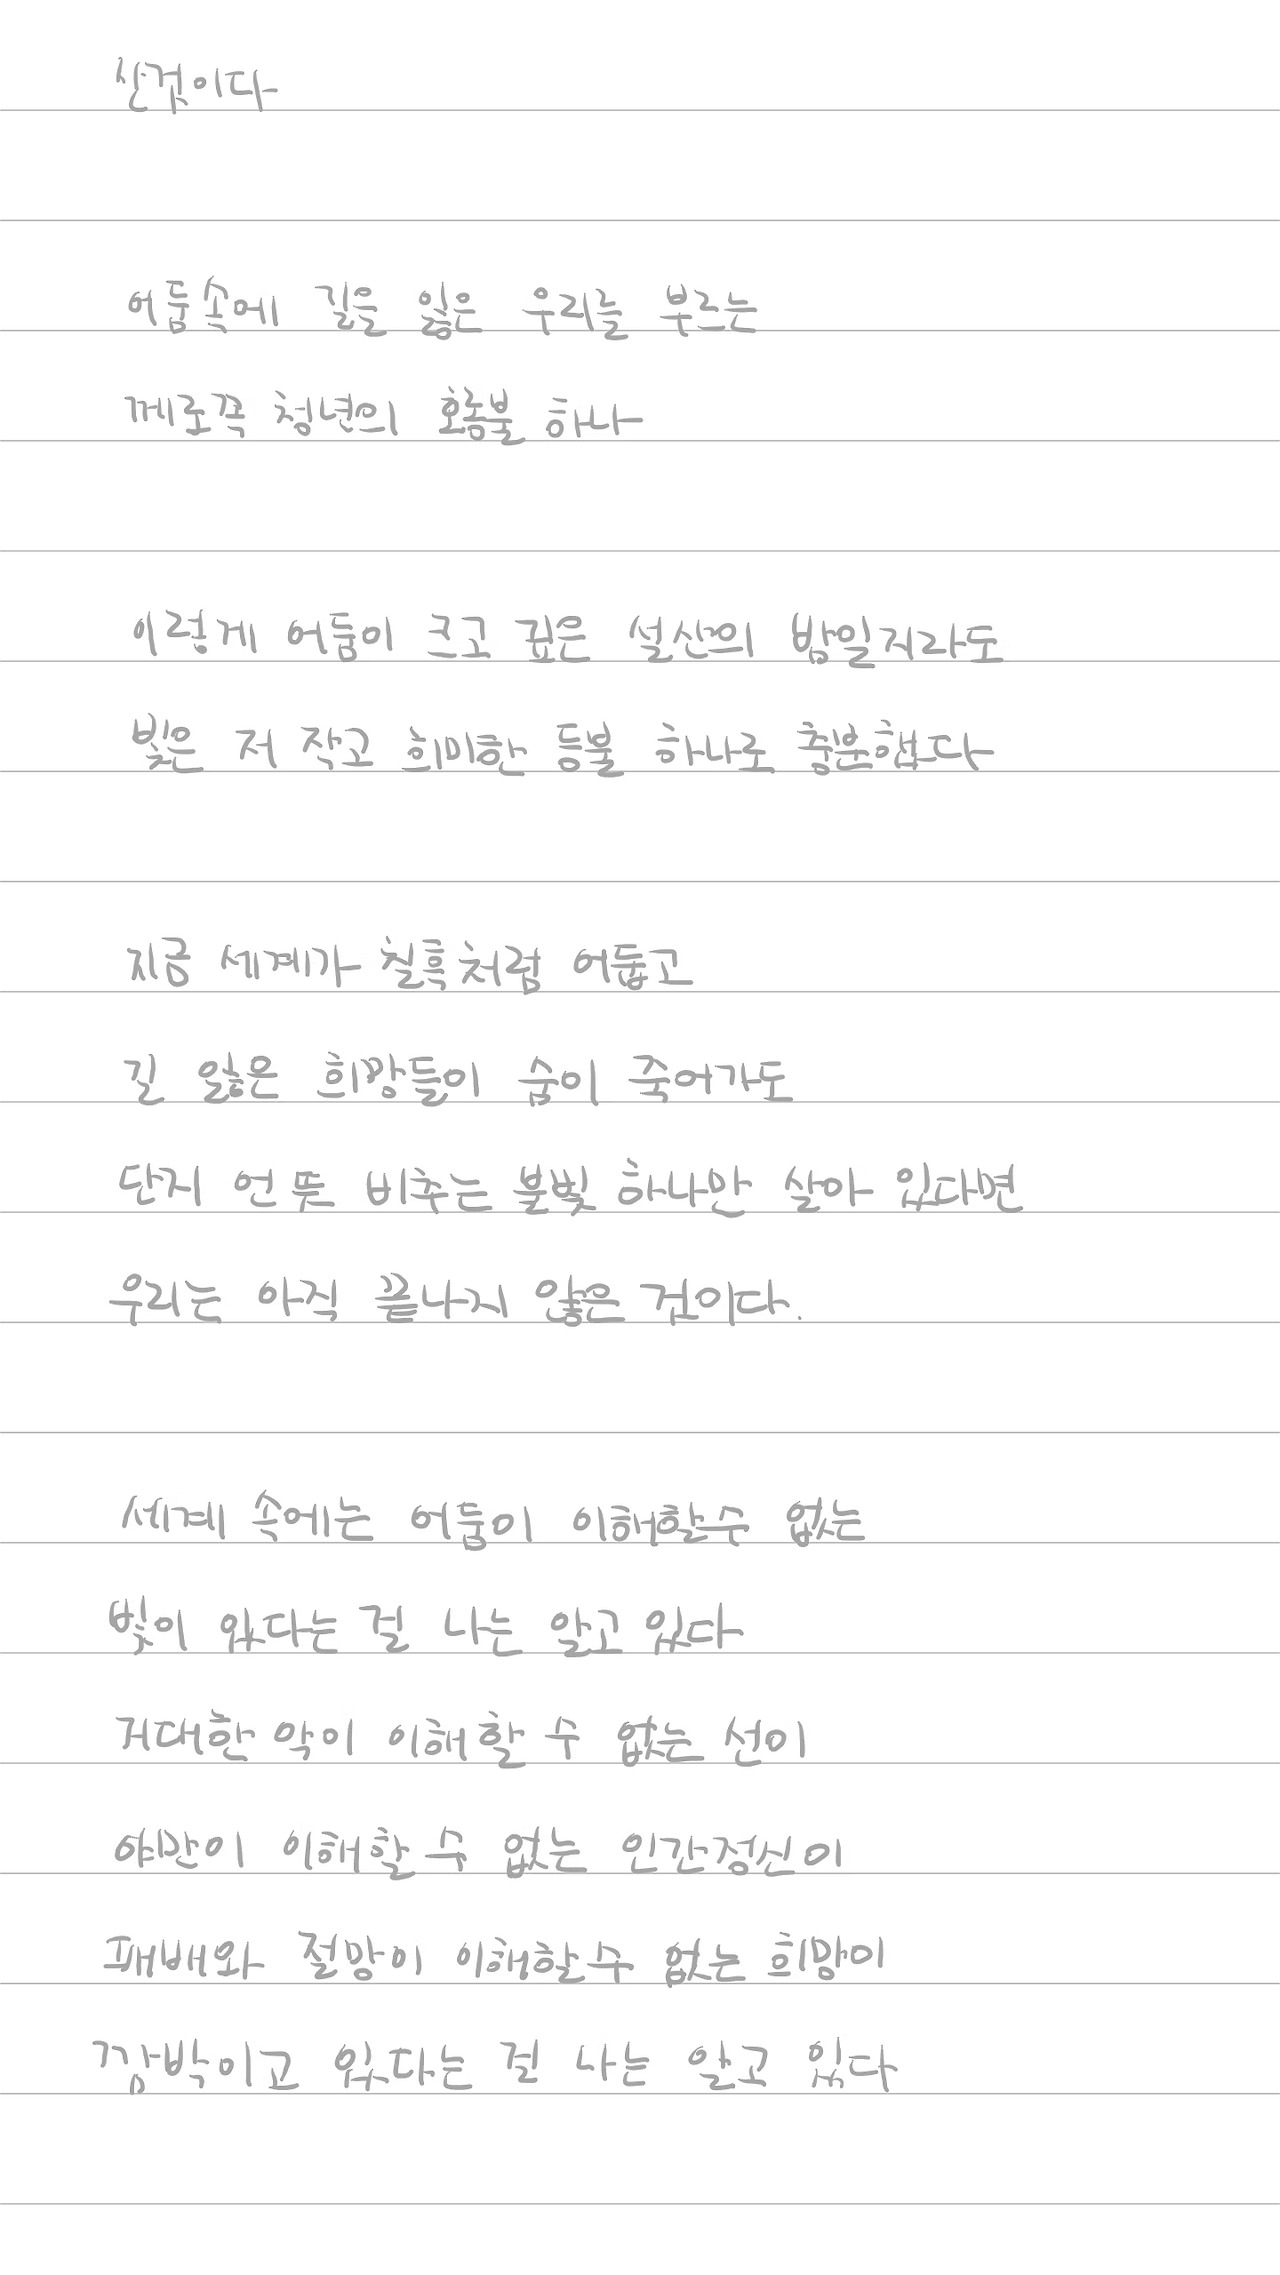 산것이다
어둠속에 길을 잃은 우리를 부르는
께로족 청년의 호롱불 하나
이렇게 어둠이 크고 깊은 설산의 밤일지라도
빛은 저 작고 희미한 등불 하나로 충분했다
지금 세계가 칠흑처럼 어둡고
길 잃은 희망들이 숨이 죽어가도
단지 언뜻 비추는 불빛 하나만 살아 있다면
우리는 아직 끝나지 않은 것이다.
세계 속에는 어둠이 이해할수 없는
빛이 있다는 걸 나는 알고 있다
거대한 악이 이해할 수 없는 선이
야만이 이해할 수 없는 인간정신이
패배와 절망이 이해할수 없는 희망이
깜박이고 있다는 걸 나는 알고 있다